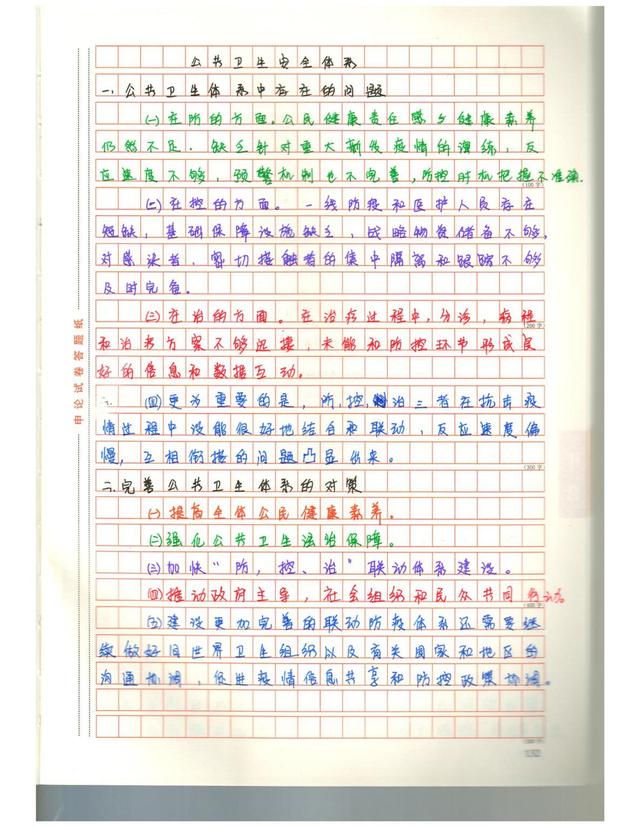 公共卫生安全体系
一.公共卫生体系中存在的问题
(一)在防的方面。公民健康责任感与健康素养
仍然不足.缺乏针对重大新发疫情的演练,反
应速度不够,预警机制也不完善,防控时机把握不准确.
(100字)
(二)在控的方面。一线防疫和医护人员存在
短缺,基础保障设施缺乏,战略物资储备不够,
对感染者,密切接触者的集中隔离和跟踪不够
及时完备。
(三)在治的方面。在治疗过程中,分诊,病程
(200字)
和治疗方案不够迅捷,未能和防控环节形成良
好的信息和数据互动。
(四)更为重要的是,防,控,治三者在抗击疫
情过程中没能很好地结合和联动,反应速度偏
慢,互相衔接的问题凸显出来。
(300字)
二.完善公共卫生体系的对策
(一)提高全体公民健康素养。
(二)强化公共卫生法治保障。
(三)加快“防,控,治”联动体系建设。
(四)推动政府主导,社会组织和民众共同
(400字)
(五)建设更加完善的联动防疫体系还需要继
续做好同世界卫生组织以及有关国家和地区的
沟通协调,促进疫情信息共享和防控政策协调。
申论试卷答题纸